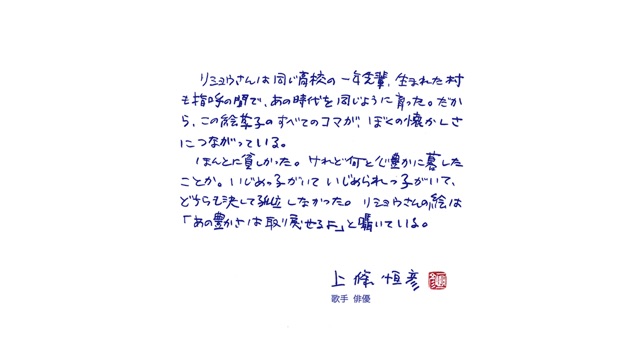 リショウさんは同じ高校の一年先輩、生まれた村
も指呼の間で、あの時代を同じように育った。だか
ら、この絵草子のすべてのコマが、ぼくの懐かしさ
につながっている。
ほんとに貧しかった。けれど何と心豊かに暮した
ことか。いじめっ子がいていじめられっ子がいて、
どちらも決して孤立しなかった。リショウさんの絵は
「あの豊かさは取り戻せるよ」と囁いている。
上條恒彦
歌手 俳優